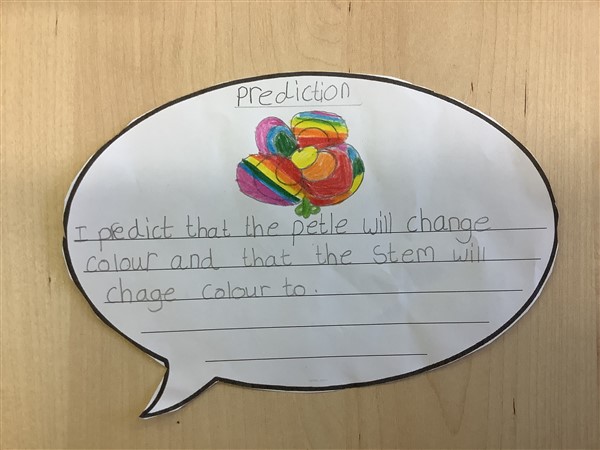 Prediction
I predict that the petle will change
colour and that the stem will
chage colour to.